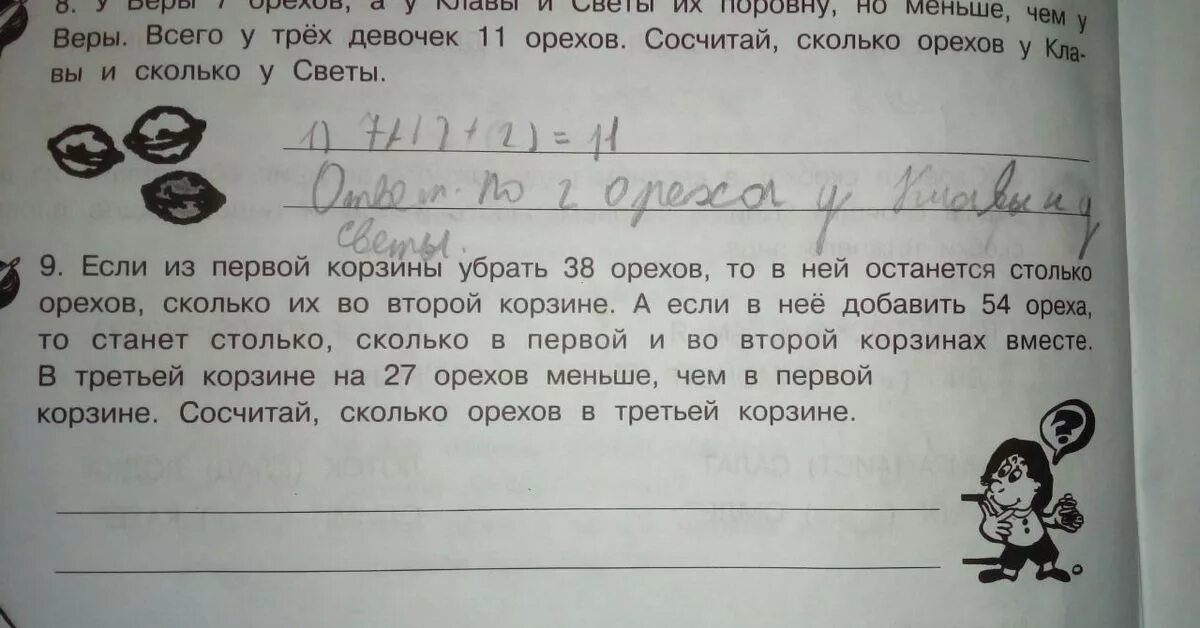 8. У Веры 7 орехов, а у Клавы и Светы их поровну, но меньше, чем у
Веры. Всего у трёх девочек 11 орехов. Сосчитай, сколько орехов у Кла-
вы и сколько у Светы.
1) 7+(2+2)=11
Ответ. По 2 ореха у Клавы и у
Светы.
9. Если из первой корзины убрать 38 орехов, то в ней останется столько
орехов, сколько их во второй корзине. А если в неё добавить 54 ореха,
то станет столько, сколько в первой и во второй корзинах вместе.
В третьей корзине на 27 орехов меньше, чем в первой
корзине. Сосчитай, сколько орехов в третьей корзине.
?